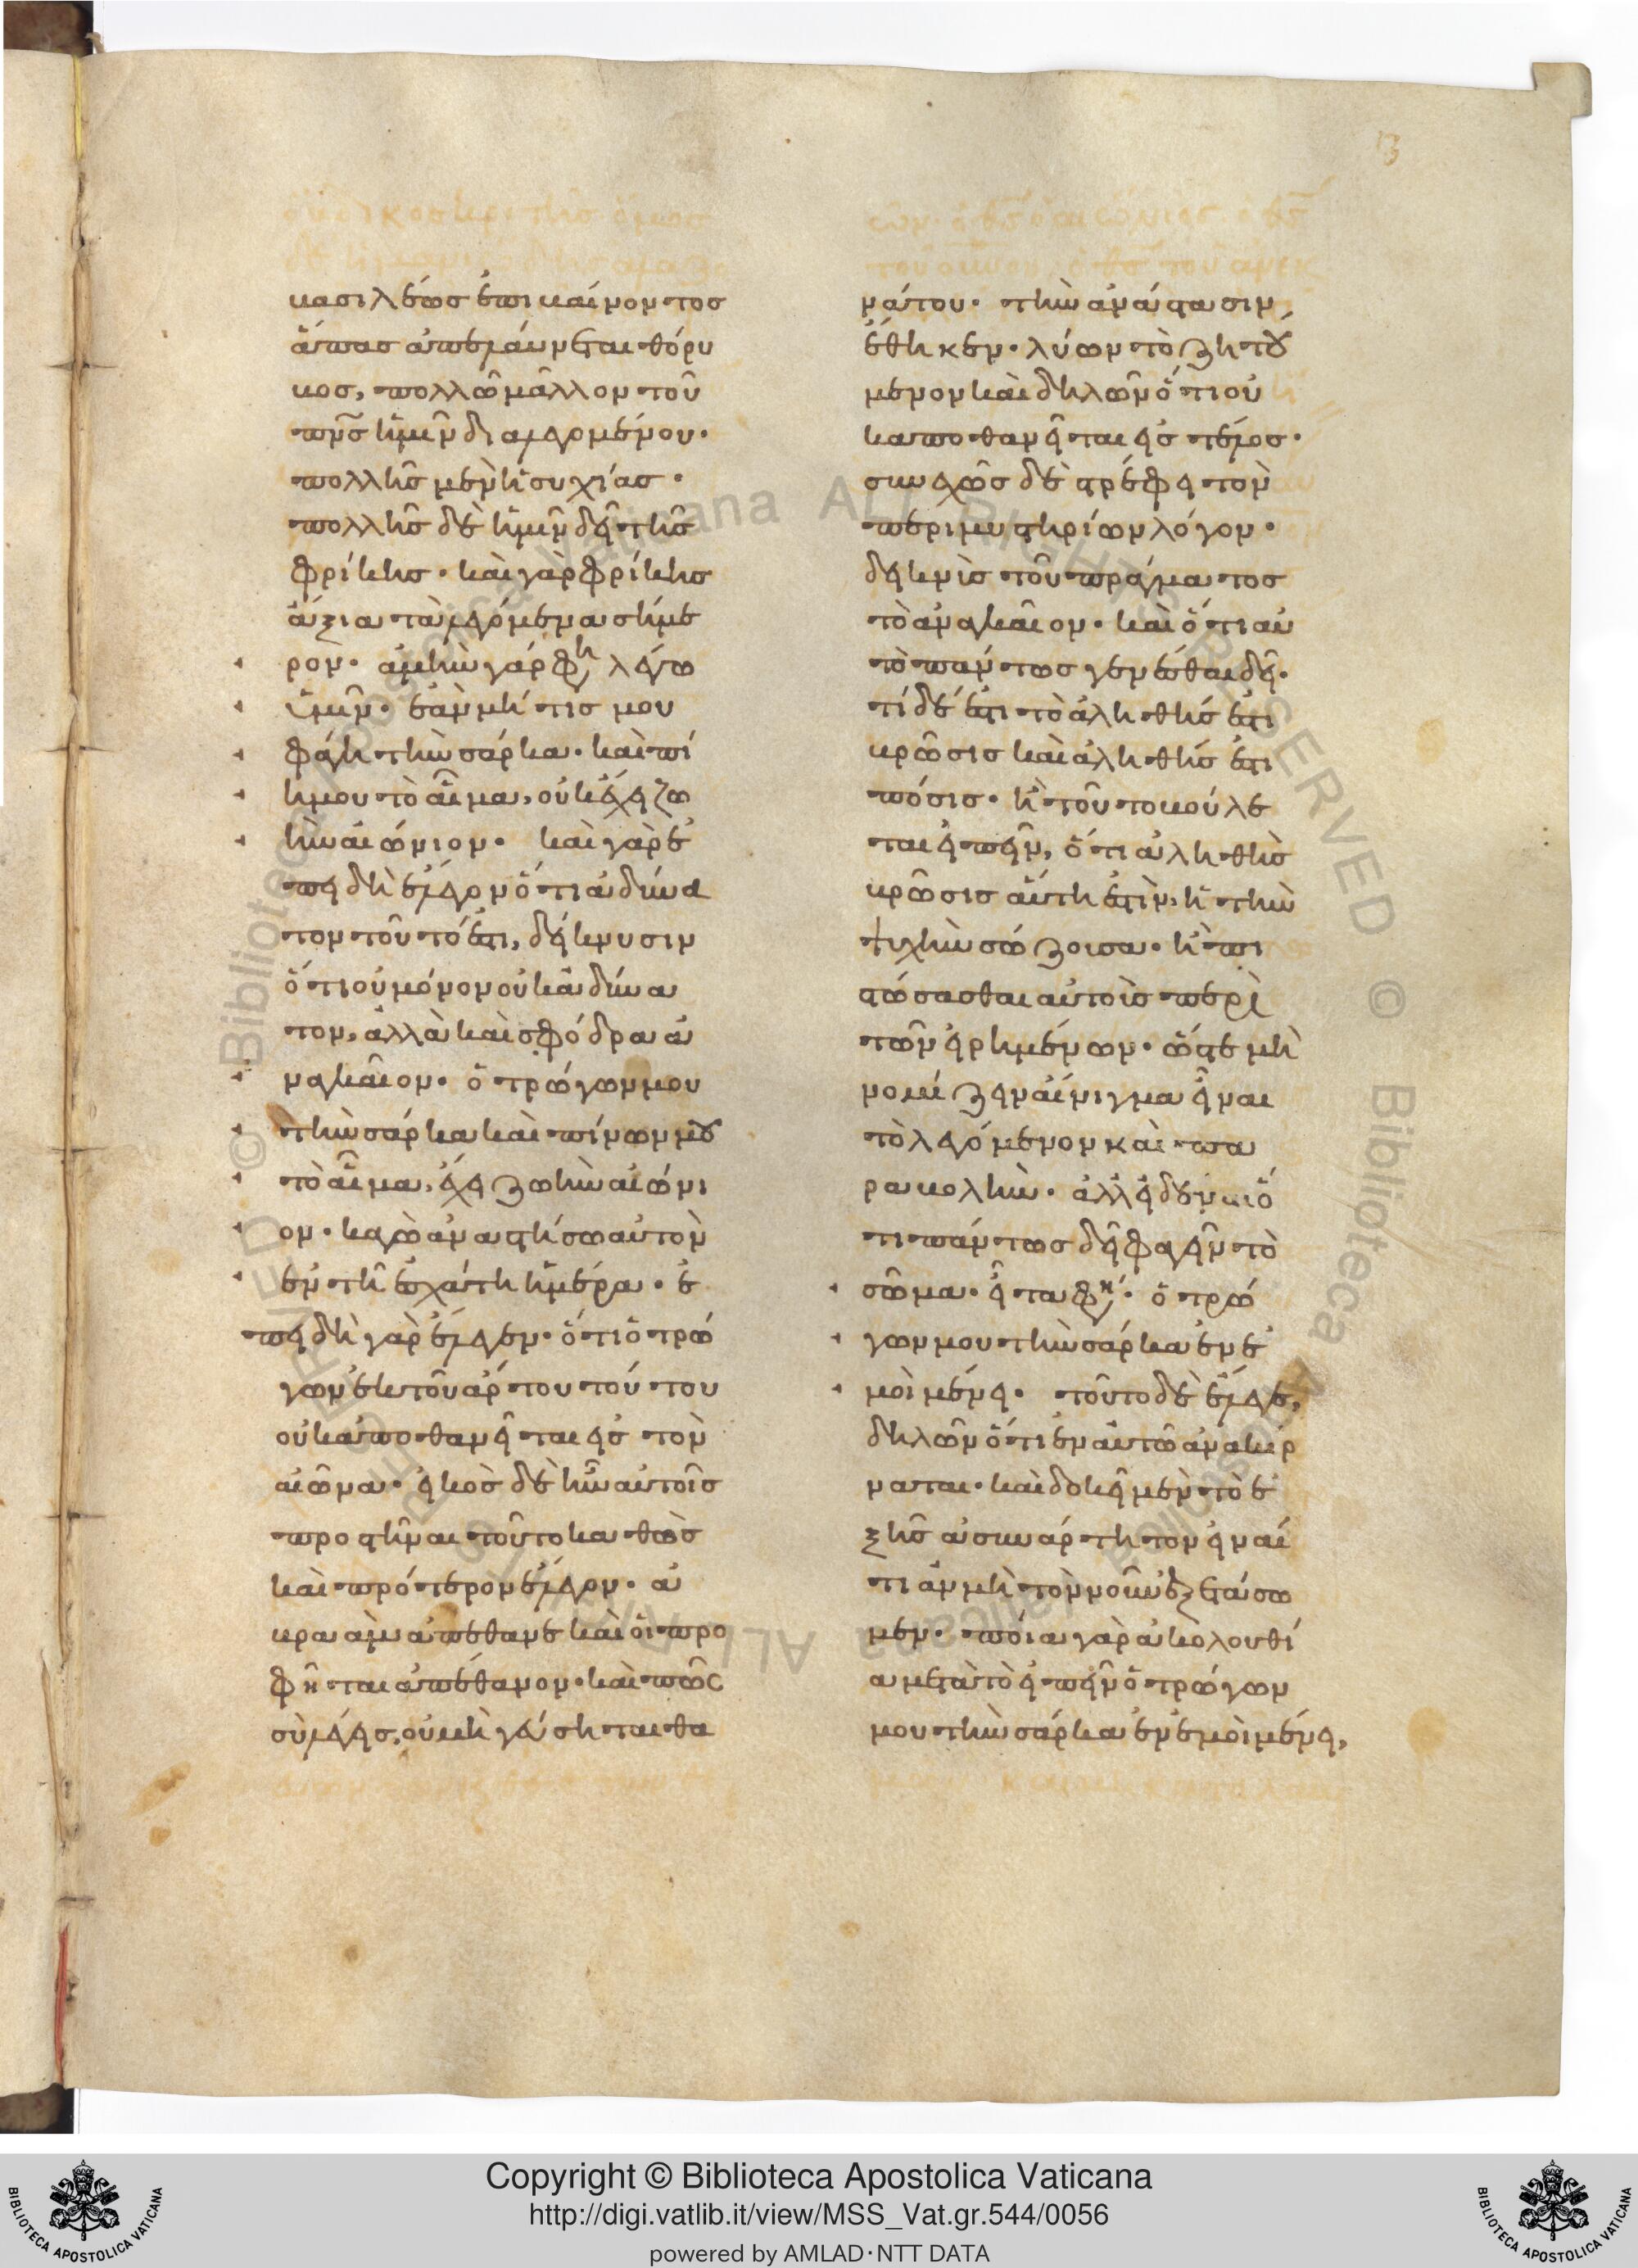 βασιλέως ἐπιβαίνοντος
ἅπας ἀπελαύνεται θόρυ
βος, πολλῶ μᾶλλον τοῦ
πνς ἡμῖν διαλεγομένου·
πολλῆς μὲν ἡσυχίας·
πολλῆς δὲ ἡμῖν δεῖ τῆς
φρίκης· καὶ γὰρ φρίκης
ἄξια τὰ λεγόμενα σήμε
ρον· ἀμὴν γάρ φη λέγω
ὑμῖν· ἐὰν μή τις μου
φάγη τὴν σάρκα· καὶ πί
η μου τὸ αἷμα, οὐκ ἔχει ζω
ὴν αἰώνιον· καὶ γὰρ ἐ
πειδὴ ἔλεγον ὅτι ἀδύνα
τον τοῦτό ἐστι, δείκνυσιν
ὅτι οὐ μόνον οὐκ ἀδύνα
τον, ἀλλὰ καὶ σφόδρα ἀ
ναγκαῖον· ὁ τρώγων μου
τὴν σάρκα καὶ πίνων μου
τὸ αἷμα, ἔχει ζωὴν αἰώνι
ον· καγὼ ἀναστήσω αὐτὸν
ἐν τῆ ἐσχάτη ἡμέρα· ἐ
πειδὴ γὰρ ἔλεγεν· ὅτι ὁ τρώ
γων ἐκ τοῦ ἄρτου τούτου
οὐκ ἀποθανεῖται εἰς τὸν
αἰῶνα· εἰκὸς δὲ ἦν αὐτοῖς
προστῆναι τοῦτο καθὼς
καὶ πρότερον ἔλεγον· ἀ
βραὰμ ἀπέθανε καὶ οἱ προ
φῆται ἀπέθανον· καὶ πῶς
σὺ λέγεις, οὐ μὴ γεύσηται θα
νάτου· τὴν ἀνάστασιν
ἔθηκεν· λύων τὸ ζητού
μενον καὶ δηλῶν ὅτι οὐ
κ ἀποθανεῖται εἰς τέλος·
συνεχῶς δὲ στρέφει τὸν
περὶ μυστηρίων λόγον·
δεικνὺς τοῦ πράγματος
τὸ ἀναγκαῖον· καὶ ὅτι αὐ
τὸ πάντως γενέσθαι δεῖ·
τί δέ ἐστι τὸ ἀληθής ἐστι
βρῶσις καὶ ἀληθής ἐστι
πόσις· ἢ τοῦτο βούλε
ται εἰπεῖν, ὅτι ἀληθὴς
βρῶσις αὕτη ἐστὶν, ἡ τὴν
ψυχὴν σώζουσα· ἢ πι
στώσασθαι αὐτοὺς περὶ
τῶν εἰρημένων· ὥστε μὴ
νομίζειν αἴνιγμα εἶναι
τὸ λεγόμενον καὶ πα
ραβολὴν· ἀλλ' εἰδέναι ὅ
τι πάντως δεῖ φαγεῖν τὸ
σῶμα· εἶτα φη· ὁ τρώ
γων μου τὴν σάρκα ἐν ἐ
μοὶ μένει· τοῦτο δὲ ἔλεγε,
δηλῶν ὅτι ἐν αὐτῶ ἀνακίρ
ναται· καὶ δοκεῖ μὲν τὸ ἑ
ξῆς ἀσυνάρτητον εἶναί
τι ἂν μὴ τὸν νοῦν ἐξετάσω
μεν· ποία γὰρ ἀκολουθί
α μετὰ τὸ εἰπεῖν ὁ τρώγων
μου τὴν σάρκα ἐν ἐμοὶ μένει,
Copyright © Biblioteca Apostolica Vaticana
http://digi.vatlib.it/view/MSS_Vat.gr.544/0056
powered by AMLAD·NTT DATA